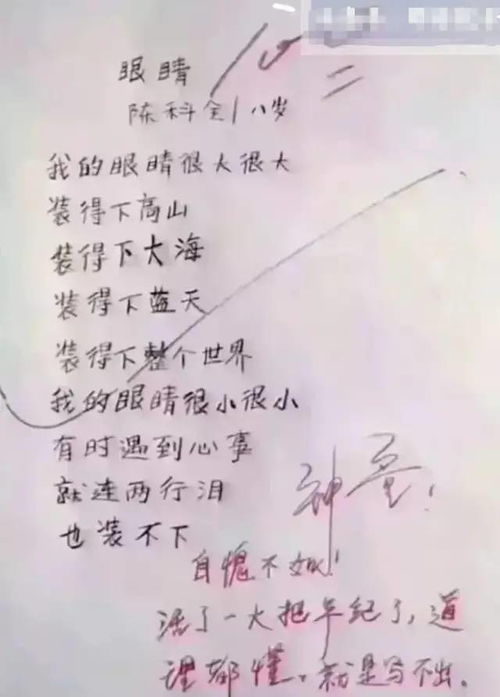 眼睛
100
陈科全/八岁
我的眼睛很大很大
装得下高山
装得下大海
装得下蓝天
装得下整个世界
我的眼睛很小很小
有时遇到心事
就连两行泪
也装不下
神童!
自愧不如!
活了一大把年纪了,道
理都懂,就是写不出.